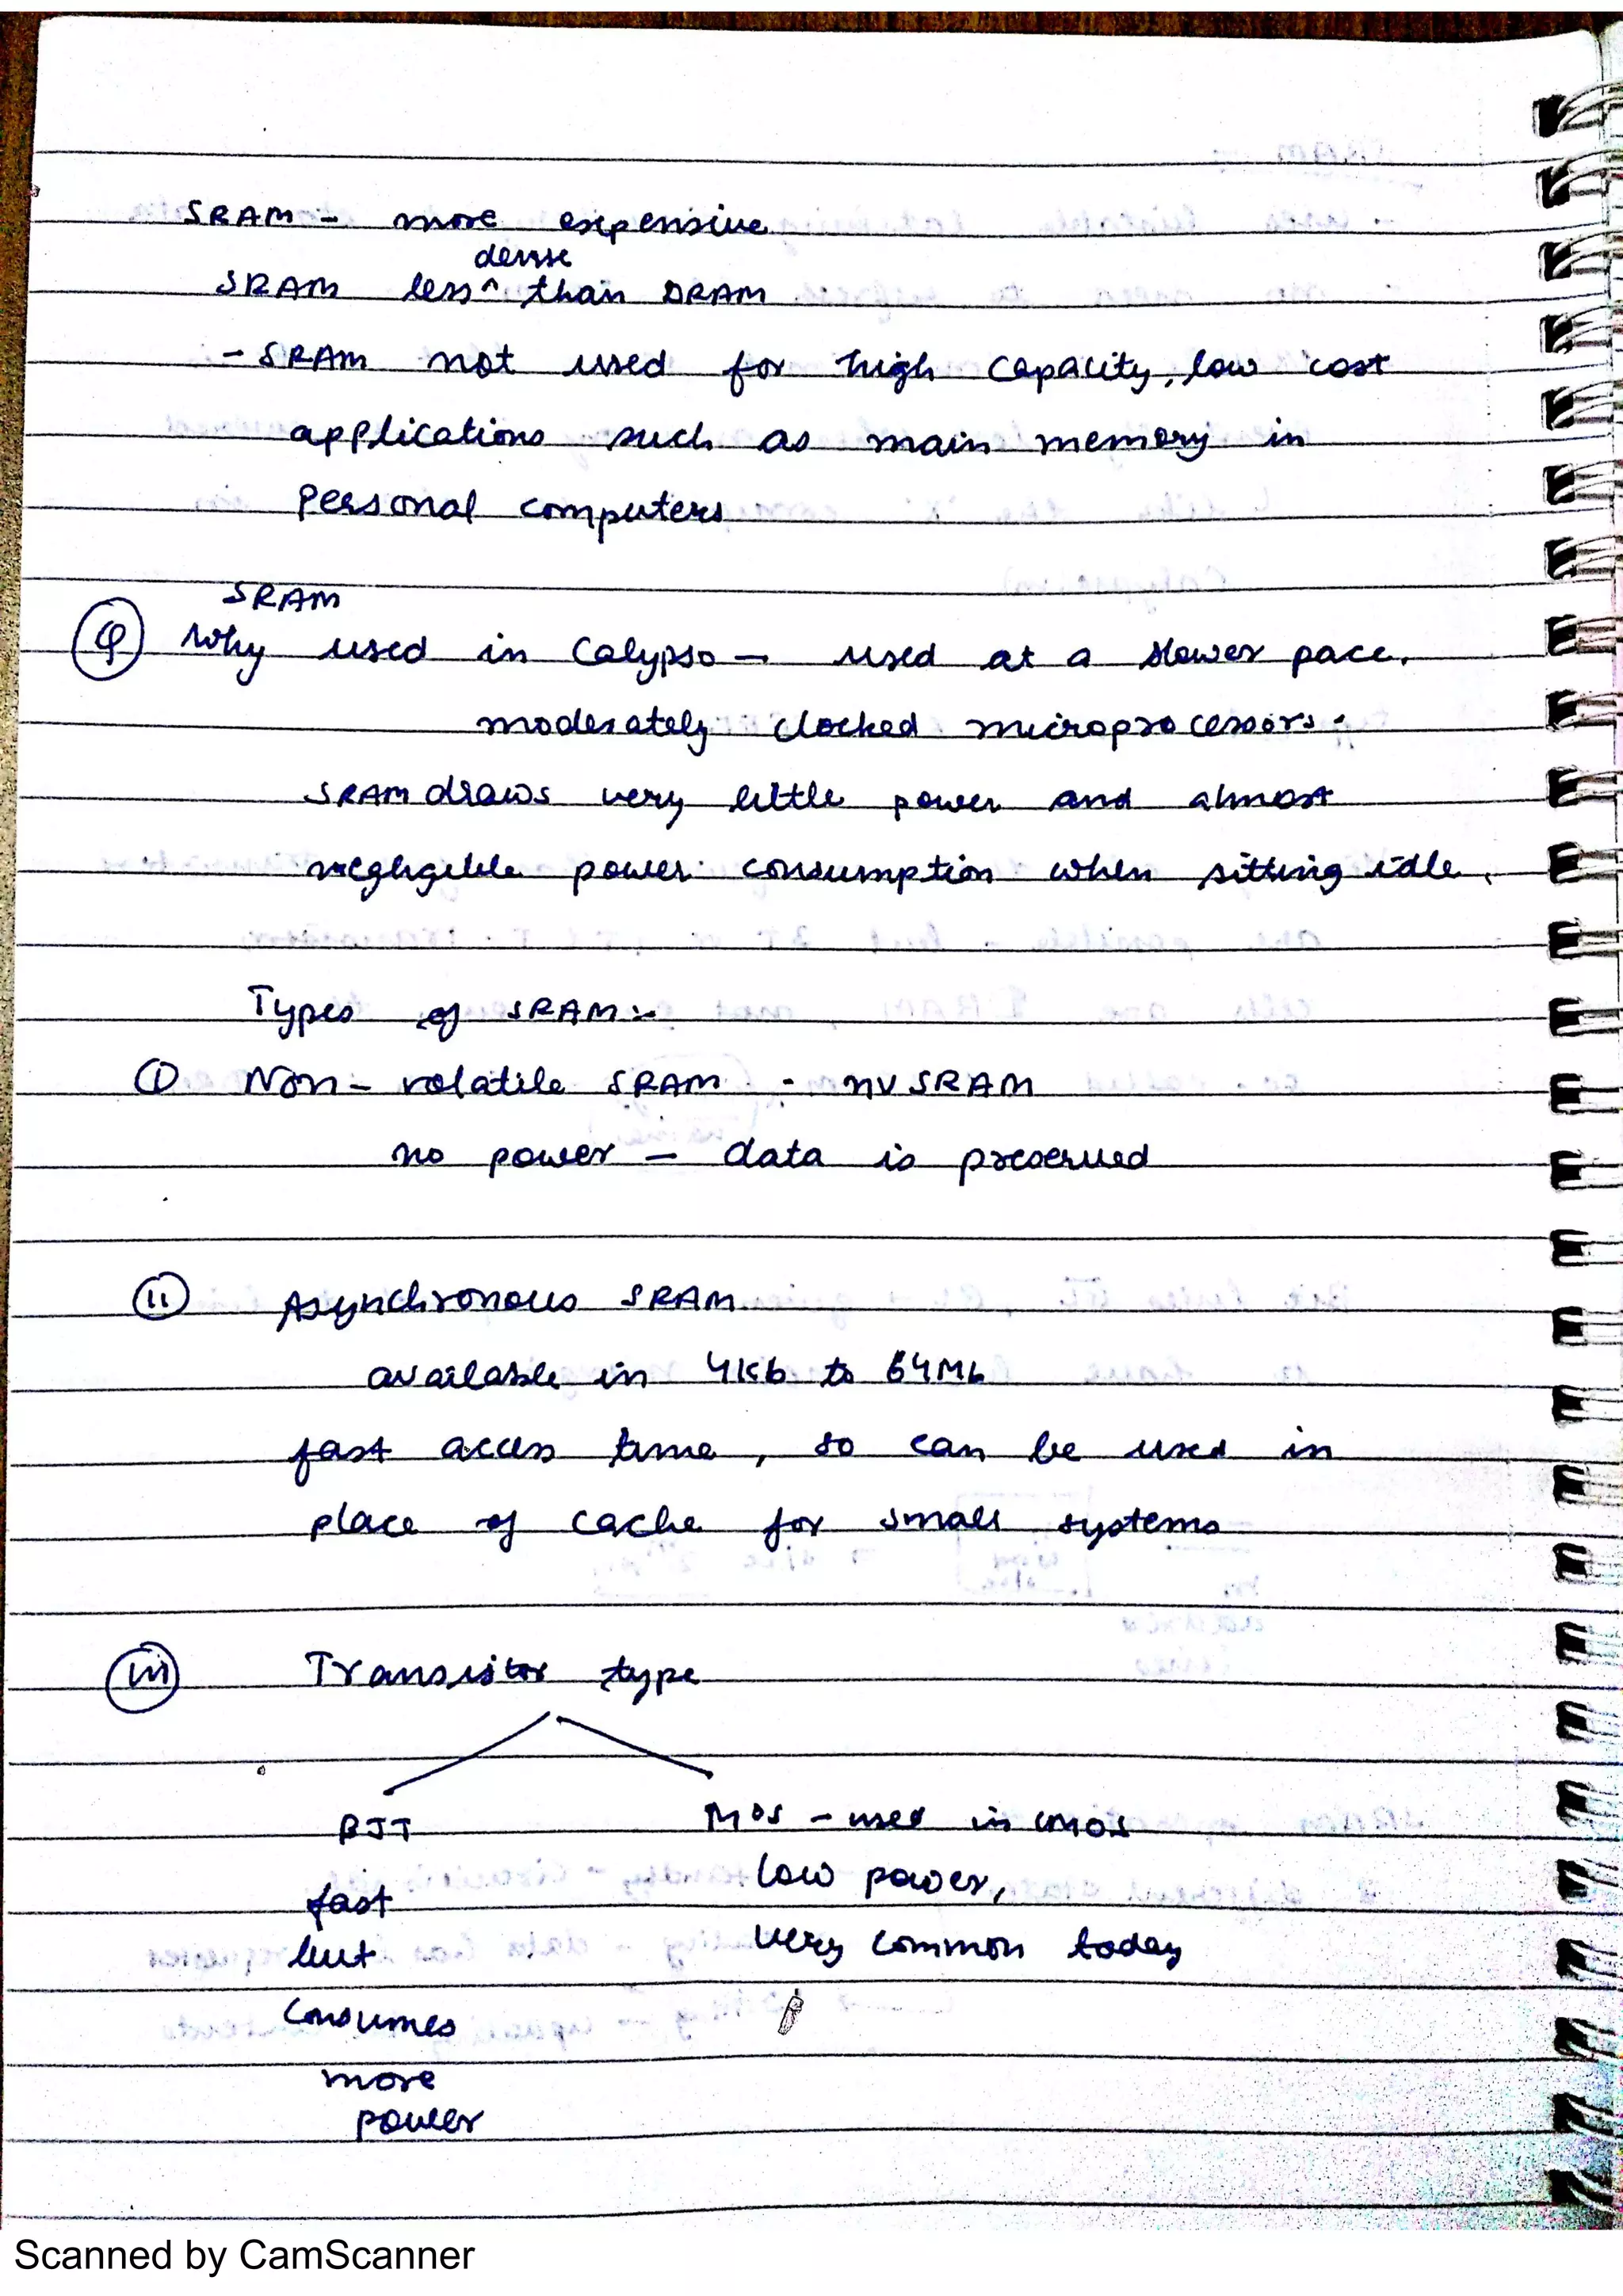 SRAM :- more expensive
SRAM less ^ dense than DRAM
- SRAM not used for high capacity, low cost
applications such as main memory in
personal computers
Q Why SRAM used in Calypso - used at a slower pace,
moderately clocked microprocessors.
SRAM draws very little power and almost
negligible power consumption when sitting idle.
Types of SRAM :-
(i) Non-volatile SRAM - nvSRAM
no power - data is preserved
(ii) Asynchronous SRAM
available in 4Kb to 64Mb
fast access time, so can be used in
place of cache for small systems
(iii) Transistor type
BJT
fast
but
consumes
more
power
MOS - used in CMOS
low power,
very common today
Scanned by CamScanner